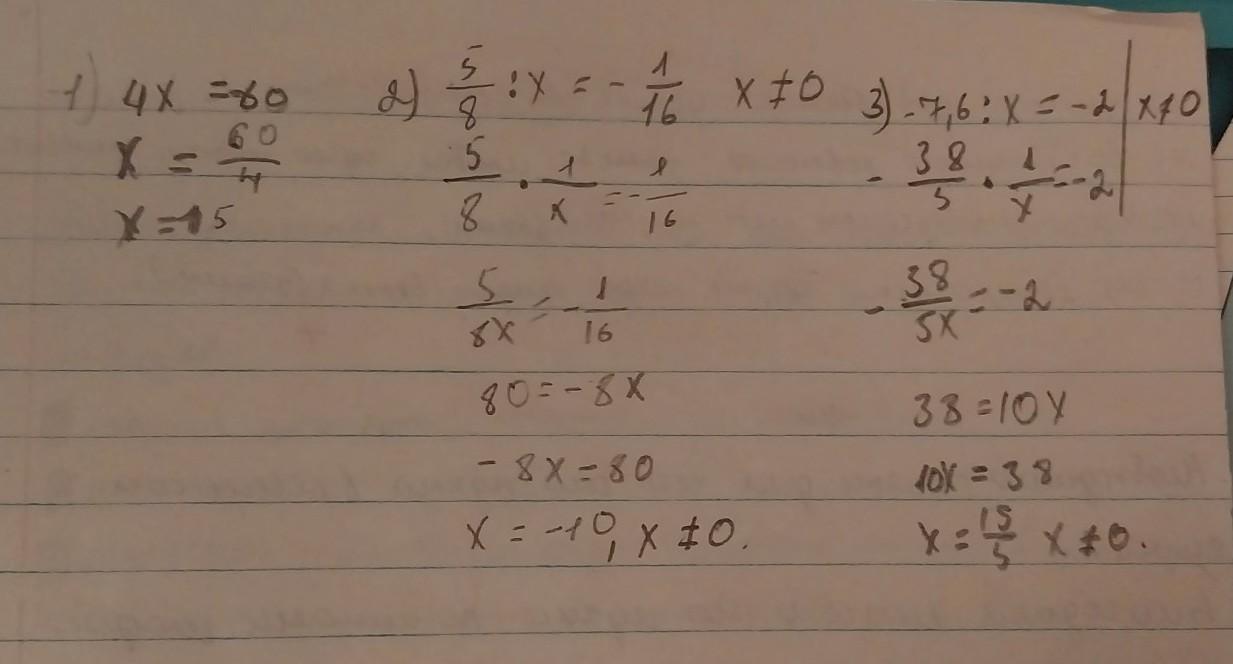 1) 4x = 60
x = 60/4
x = 15
2) 5/8 : x = - 1/16 x ≠ 0
5/8 · 1/x = - 1/16
5/8x = - 1/16
80 = - 8x
- 8x = 80
x = -10, x ≠ 0.
3) -7,6 : x = -2 | x ≠ 0
- 38/5 · 1/x = -2
- 38/5x = -2
38 = 10x
10x = 38
x = 15/5 x ≠ 0.